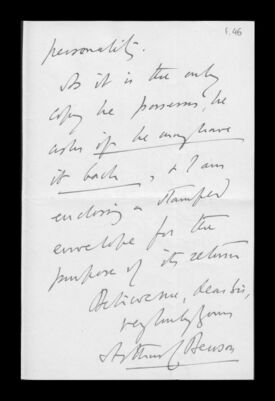 f. 46
personality.
As it is the only
copy he possesses, he
asks if he may have
it back, & I am
enclosing a stamped
envelope for the
purpose of its return
Believe me, dear Sir,
very truly yours
Arthur C. Benson